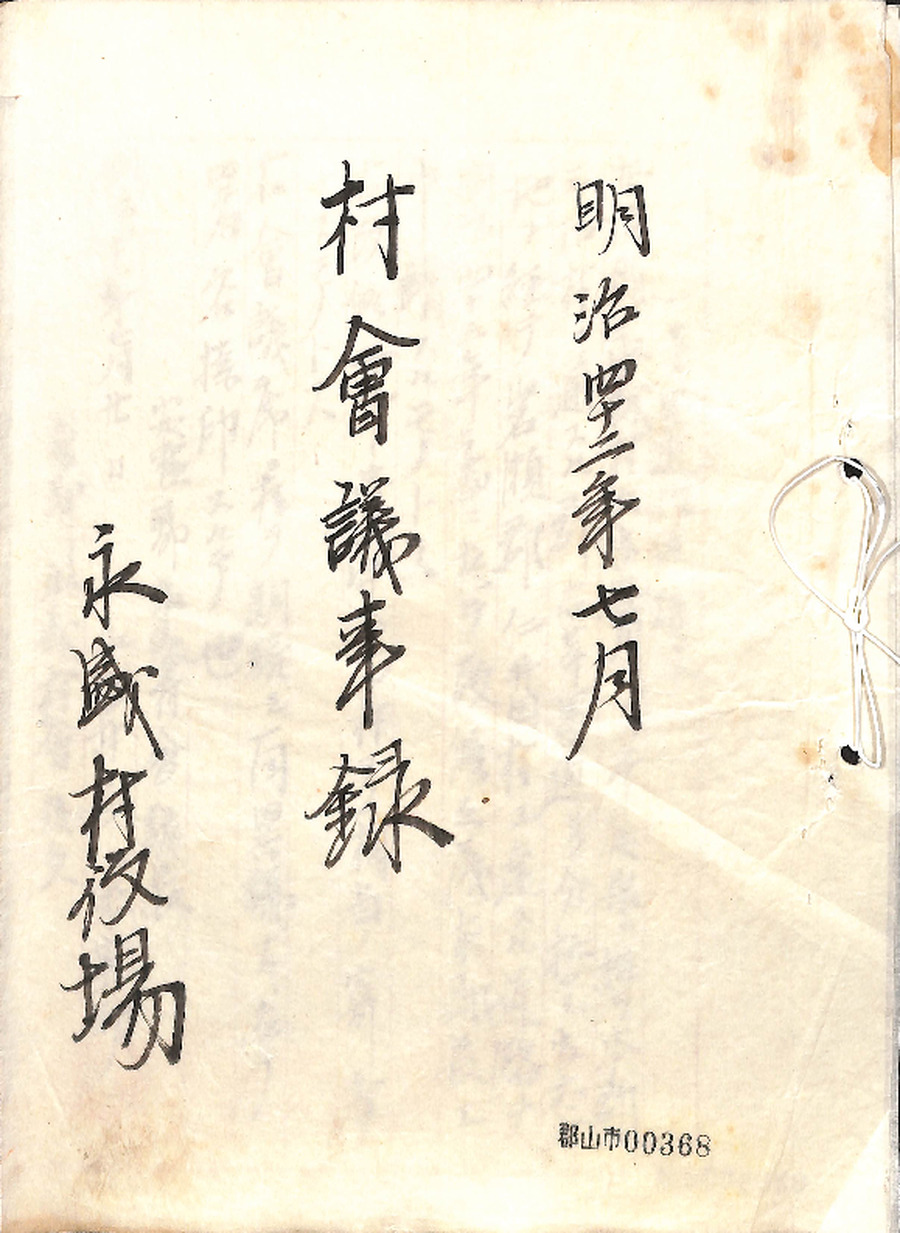 明治四十二年七月
村會議事録
永盛村役場
郡山市00368